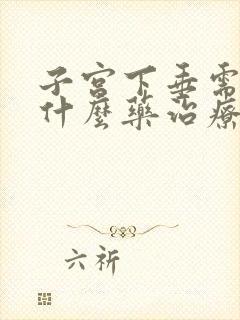 子宫下垂需
什麼藥治療
六祈